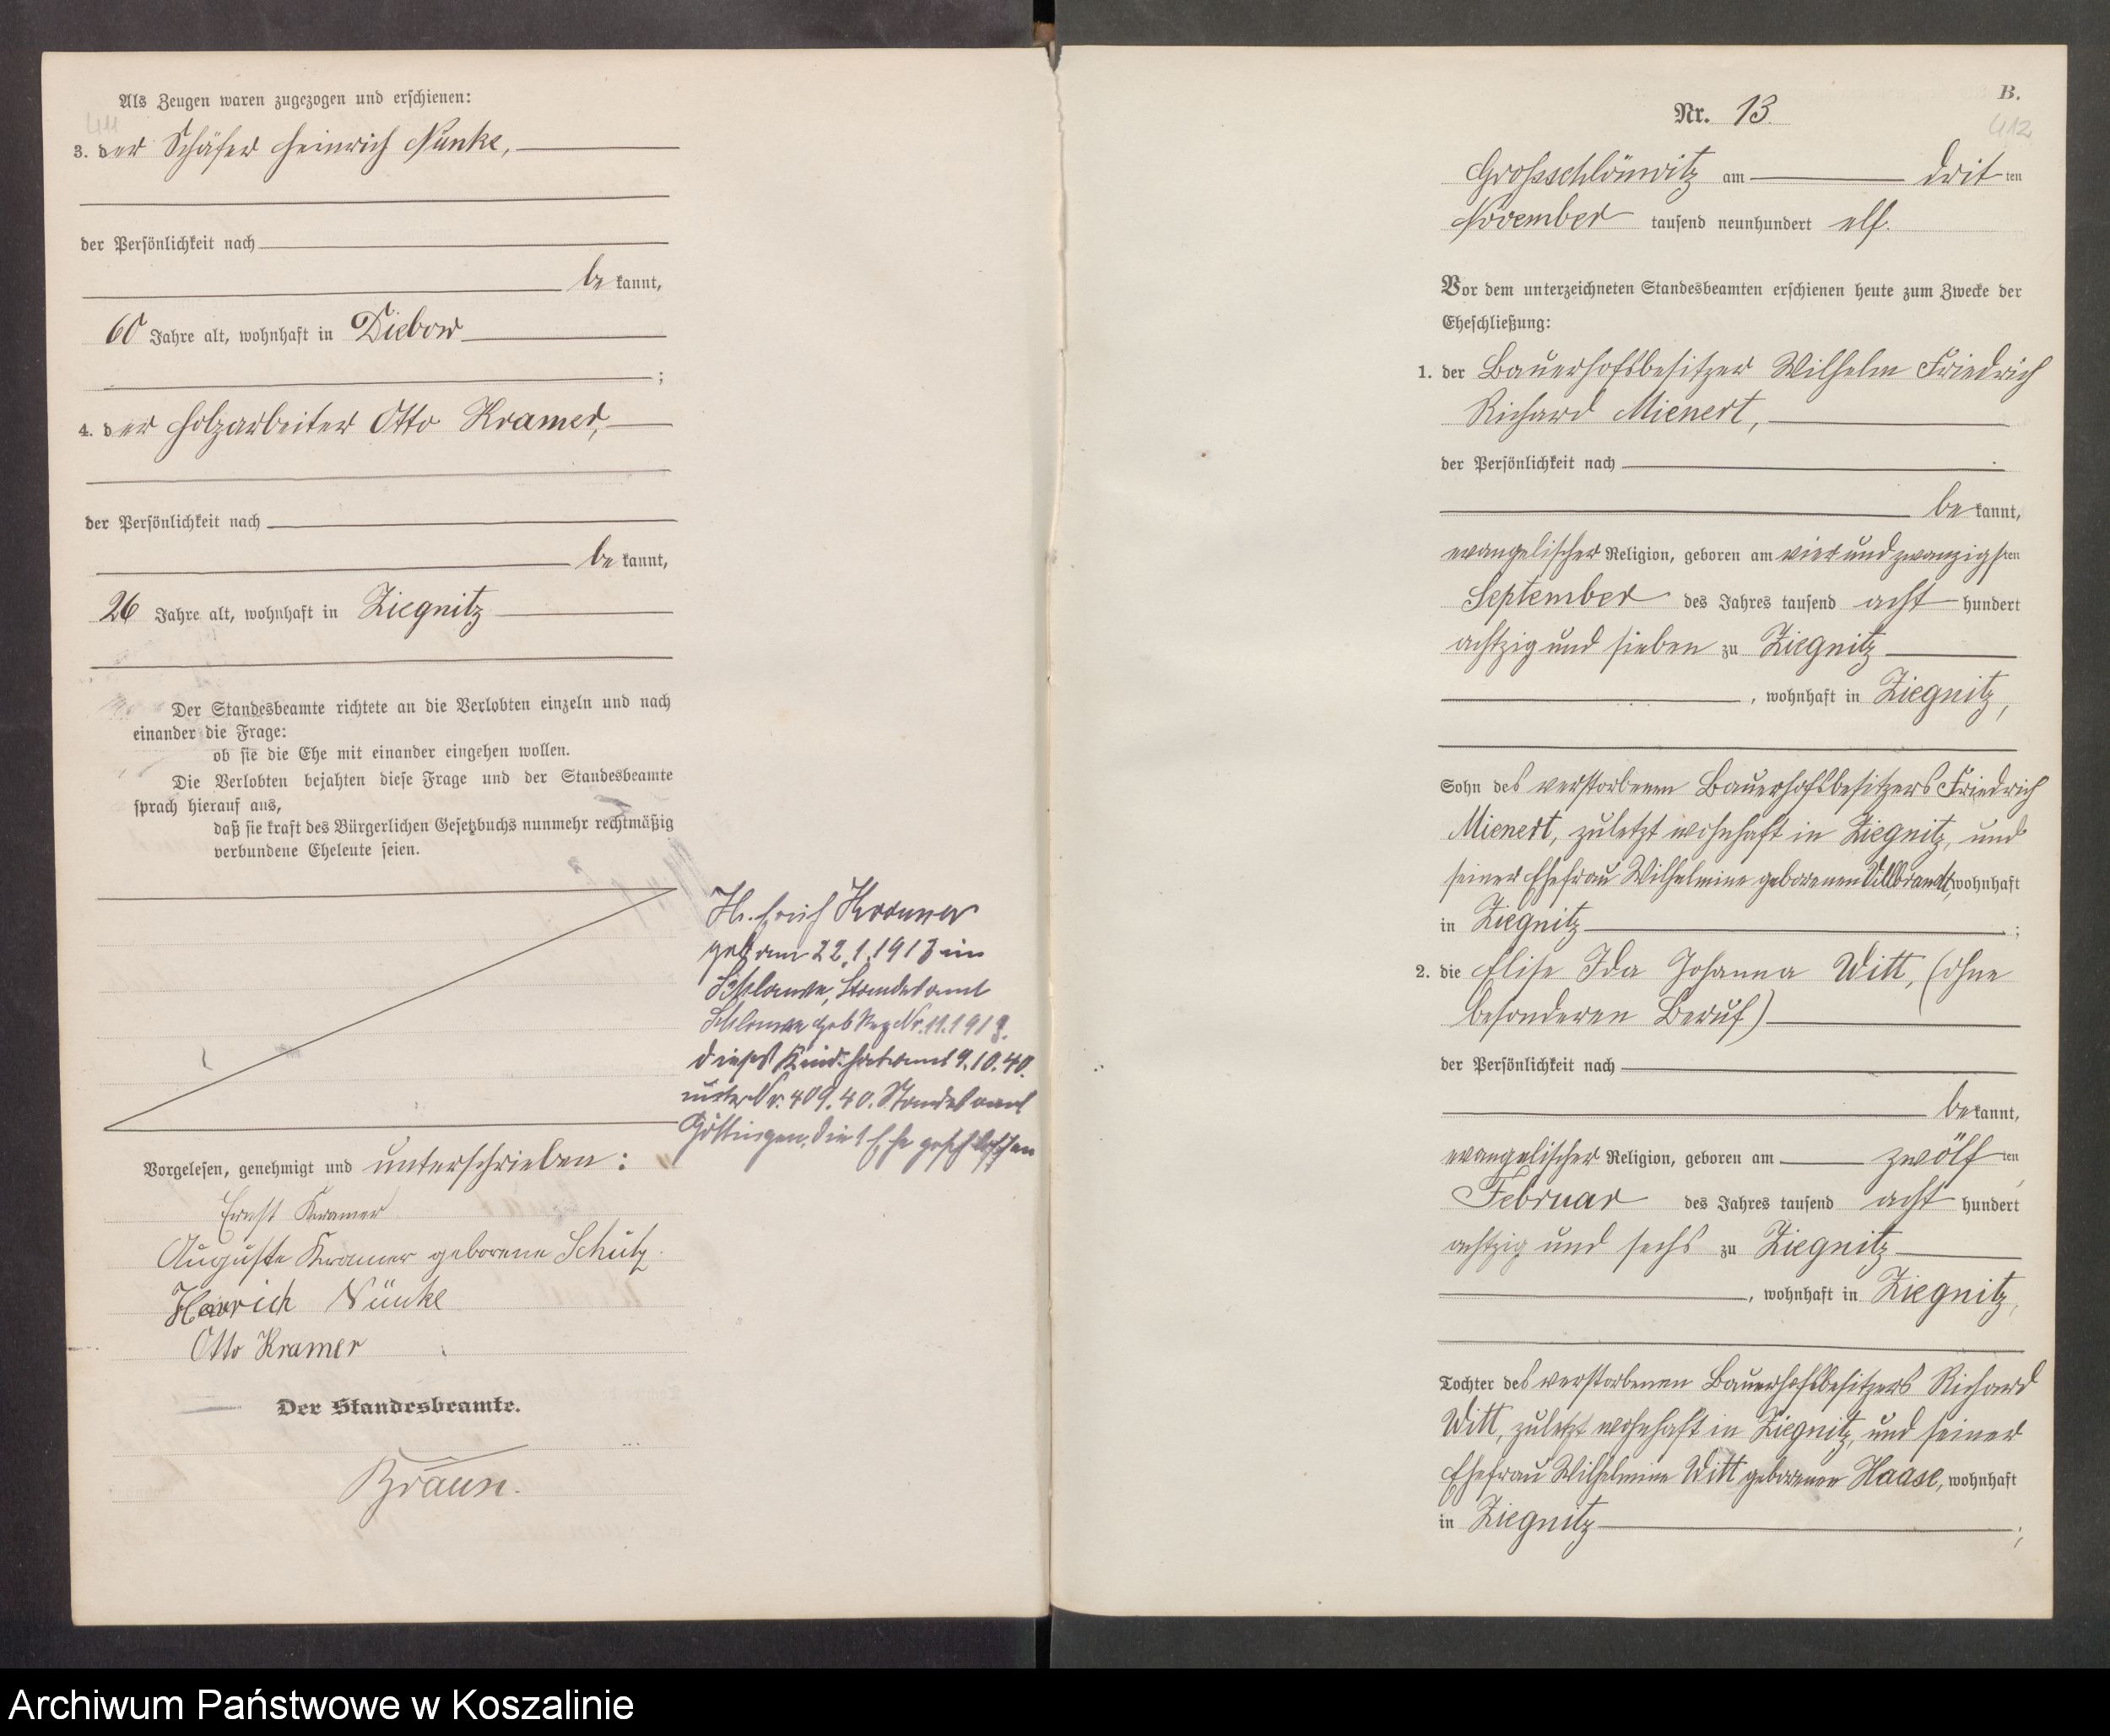 Als Zeugen waren zugezogen und erschienen:
411
3. der Schäfer Heinrich Nünke,
der Persönlichkeit nach
be kannt,
60 Jahre alt, wohnhaft in Diebow
;
4. der Holzarbeiter Otto Kramer,
der Persönlichkeit nach
be kannt,
26 Jahre alt, wohnhaft in Ziegnitz
Der Standesbeamte richtete an die Verlobten einzeln und nach
einander die Frage:
ob sie die Ehe mit einander eingehen wollen.
Die Verlobten bejahten diese Frage und der Standesbeamte
sprach hierauf aus,
daß sie kraft des Bürgerlichen Gesetzbuchs nunmehr rechtmäßig
verbundene Eheleute seien.
Kramer
geb. am 22.1.1913 in
Schlawe, Standesamt
Schlawe Geb Reg Nr. 11.1913.
dieses Kind hat am 9.10.40.
unter Nr. 409.40. Standesamt
Göttingen die 1 Ehe geschlossen
Vorgelesen, genehmigt und unterschrieben:
Ernst Kramer
Auguste Kramer geborene Schulz.
Heinrich Nünke
Otto Kramer
Der Standesbeamte.
Braun.
B.
Nr. 13.
412
Großschlönwitz am dritten
November tausend neunhundert elf.
Vor dem unterzeichneten Standesbeamten erschienen heute zum Zwecke der
Eheschließung:
1. der Bauerhofsbesitzer Wilhelm Friedrich
Richard Mienert,
der Persönlichkeit nach
be kannt,
evangelischer Religion, geboren am vierundzwanzigsten
September des Jahres tausend acht hundert
achtzig und sieben zu Ziegnitz
, wohnhaft in Ziegnitz,
Sohn des verstorbenen Bauerhofsbesitzers Friedrich
Mienert, zuletzt wohnhaft in Ziegnitz, und
seiner Ehefrau Wilhelmine geborenen Villbrandt, wohnhaft
in Ziegnitz ;
2. die Elise Ida Johanna Witt, (ohne
besonderen Beruf)
der Persönlichkeit nach
be kannt,
evangelischer Religion, geboren am zwölften
Februar des Jahres tausend acht hundert
achtzig und sechs zu Ziegnitz
, wohnhaft in Ziegnitz,
Tochter des verstorbenen Bauerhofsbesitzers Richard
Witt, zuletzt wohnhaft in Ziegnitz, und seiner
Ehefrau Wilhelmine Witt geborenen Haase, wohnhaft
in Ziegnitz ;
Archiwum Państwowe w Koszalinie